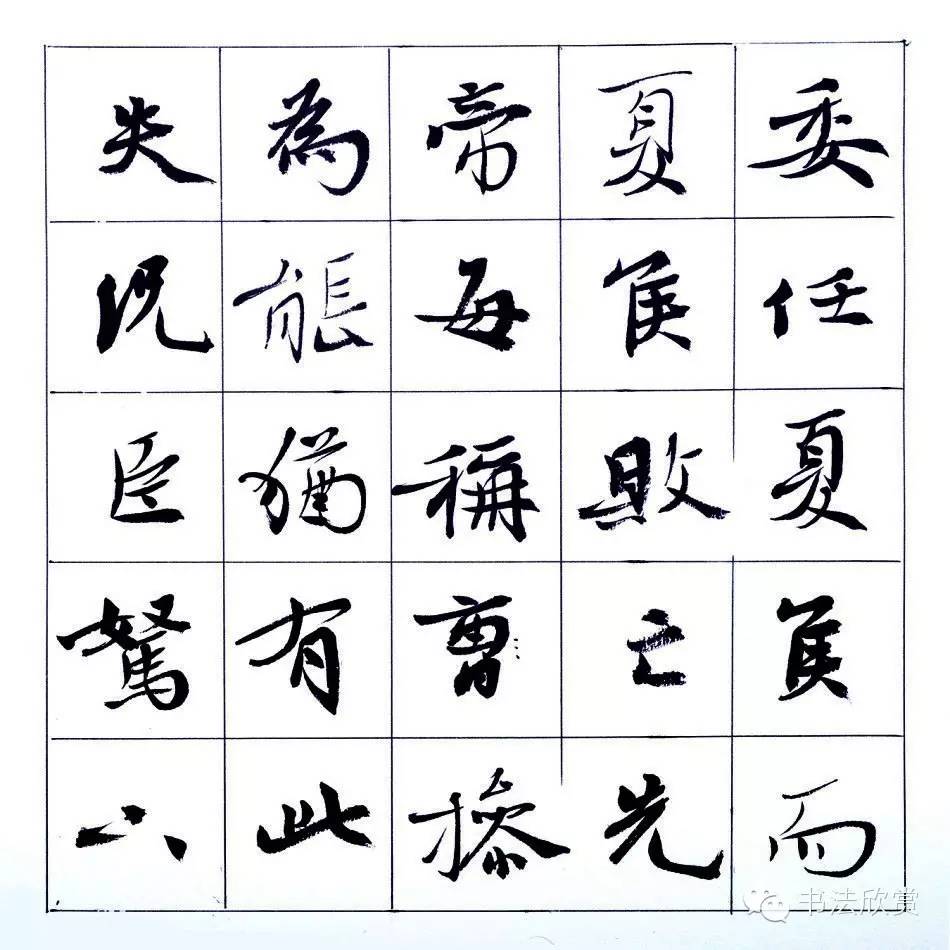 委任夏侯而
夏侯敗亡先
帝每稱曹操
為能猶有此
失況臣駑下
书法欣赏